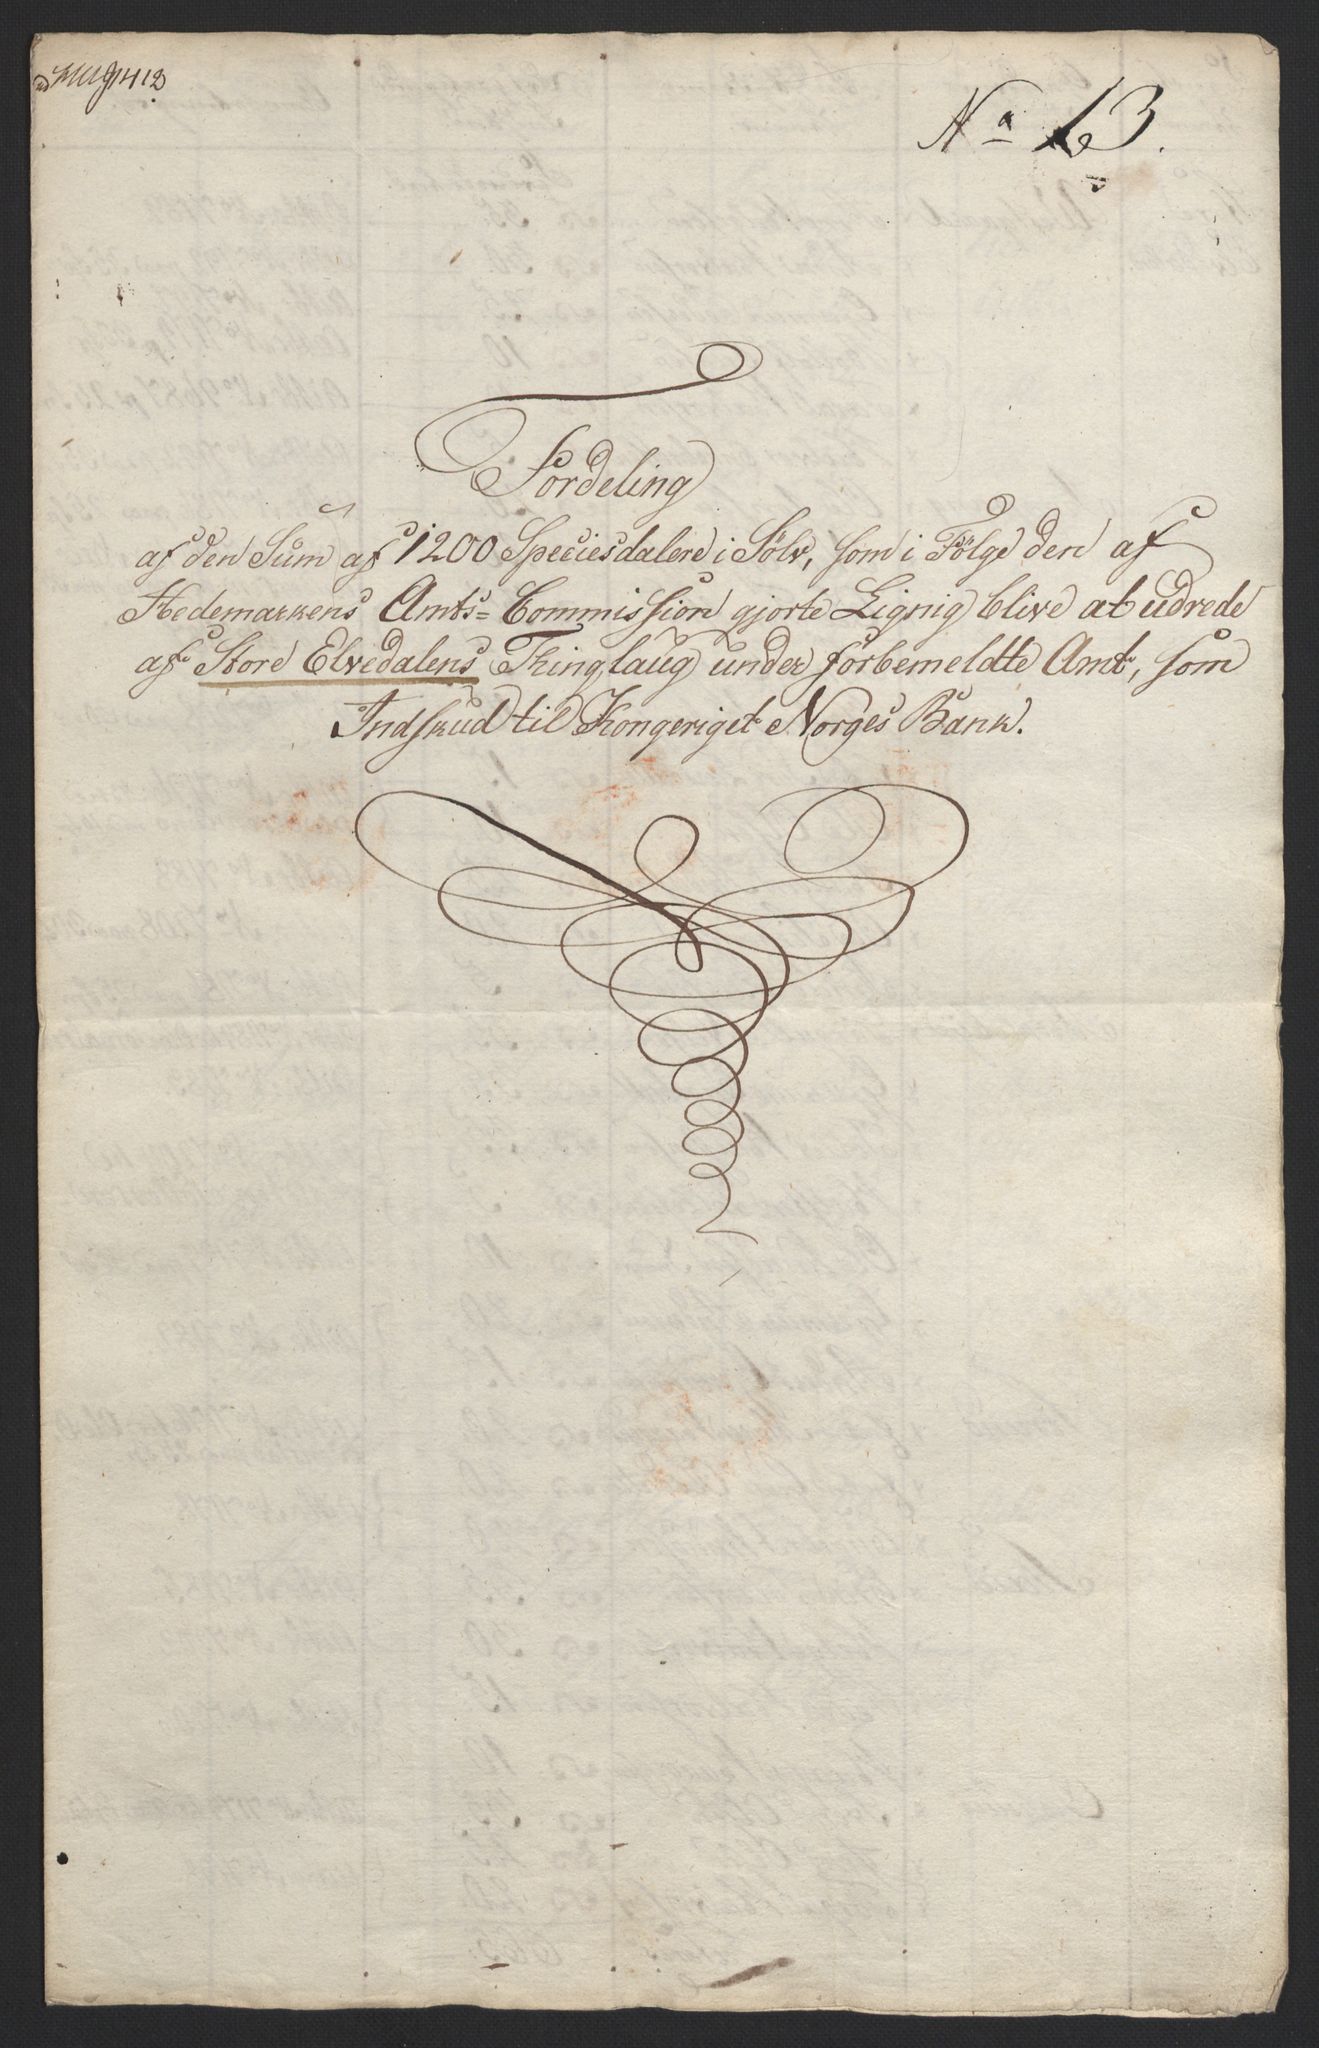 Na 13.
Fordeling
af den Sum af 1200 Speciesdalere i Sölv, som i Fölge den af
Hedemarkens Amts=Commission gjorte Lignig blive at udrede
af Store Elvedalens Thinglaug under forbemeldte Amt, som
Indskud til Kongeriget Norges Bank.